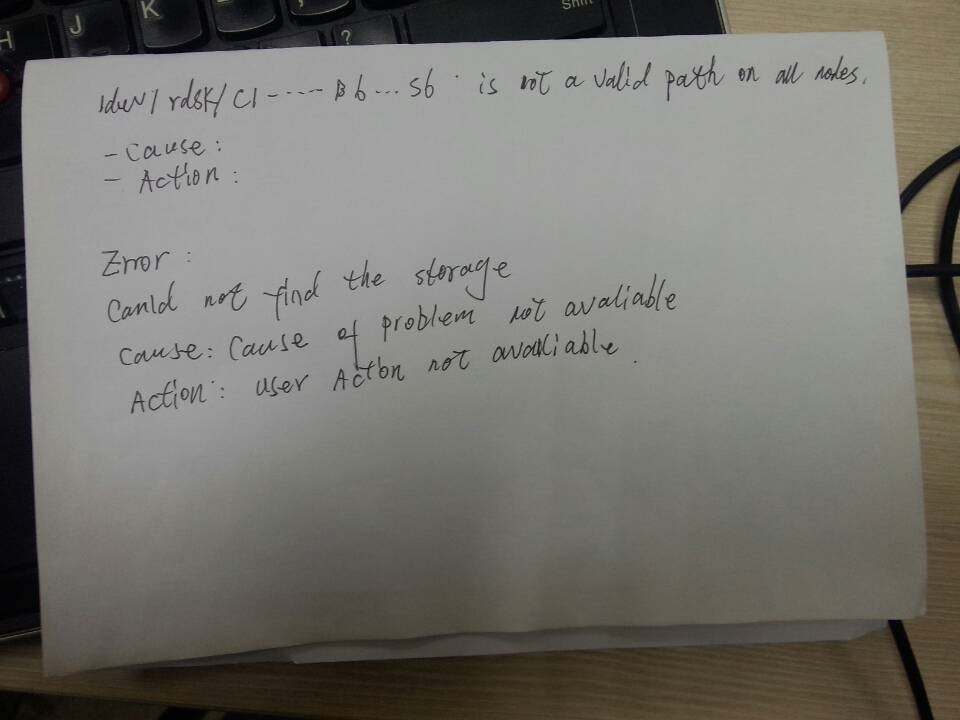 H J K ? Shift
/dev/rdsk/C1-----B6...S6 is not a valid path on all nodes.
- Cause :
- Action :
Error :
Canld not find the storage
Cause: Cause of problem not avaliable
Action: user Action not avaliable.